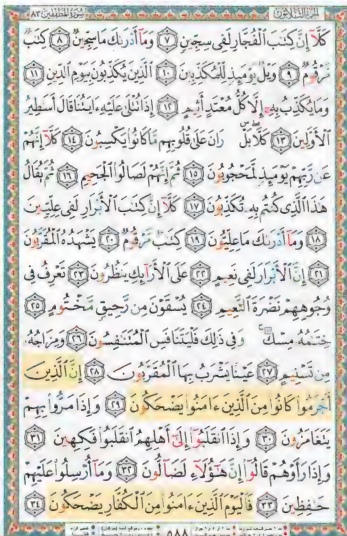 الجزء الثلاثون سورة المطففين ٨٣
كَلَّآ إِنَّ كِتَٰبَ ٱلْفُجَّارِ لَفِى سِجِّينٍ ٧ وَمَآ أَدْرَىٰكَ مَا سِجِّينٌ ٨ كِتَٰبٌ
مَّرْقُومٌ ٩ وَيْلٌ يَوْمَئِذٍ لِّلْمُكَذِّبِينَ ١٠ ٱلَّذِينَ يُكَذِّبُونَ بِيَوْمِ ٱلدِّينِ ١١
وَمَا يُكَذِّبُ بِهِۦٓ إِلَّا كُلُّ مُعْتَدٍ أَثِيمٍ ١٢ إِذَا تُتْلَىٰ عَلَيْهِ ءَايَٰتُنَا قَالَ أَسَٰطِيرُ
ٱلْأَوَّلِينَ ١٣ كَلَّا بَلْ رَانَ عَلَىٰ قُلُوبِهِم مَّا كَانُوا۟ يَكْسِبُونَ ١٤ كَلَّآ إِنَّهُمْ
عَن رَّبِّهِمْ يَوْمَئِذٍ لَّمَحْجُوبُونَ ١٥ ثُمَّ إِنَّهُمْ لَصَالُوا۟ ٱلْجَحِيمِ ١٦ ثُمَّ يُقَالُ
هَٰذَا ٱلَّذِى كُنتُم بِهِۦ تُكَذِّبُونَ ١٧ كَلَّآ إِنَّ كِتَٰبَ ٱلْأَبْرَارِ لَفِى عِلِّيِّينَ
١٨ وَمَآ أَدْرَىٰكَ مَا عِلِّيُّونَ ١٩ كِتَٰبٌ مَّرْقُومٌ ٢٠ يَشْهَدُهُ ٱلْمُقَرَّبُونَ
٢١ إِنَّ ٱلْأَبْرَارَ لَفِى نَعِيمٍ ٢٢ عَلَى ٱلْأَرَآئِكِ يَنظُرُونَ ٢٣ تَعْرِفُ فِى
وُجُوهِهِمْ نَضْرَةَ ٱلنَّعِيمِ ٢٤ يُسْقَوْنَ مِن رَّحِيقٍ مَّخْتُومٍ ٢٥
خِتَٰمُهُۥ مِسْكٌ ۚ وَفِى ذَٰلِكَ فَلْيَتَنَافَسِ ٱلْمُتَنَٰفِسُونَ ٢٦ وَمِزَاجُهُۥ
مِن تَسْنِيمٍ ٢٧ عَيْنًا يَشْرَبُ بِهَا ٱلْمُقَرَّبُونَ ٢٨ إِنَّ ٱلَّذِينَ
أَجْرَمُوا۟ كَانُوا۟ مِنَ ٱلَّذِينَ ءَامَنُوا۟ يَضْحَكُونَ ٢٩ وَإِذَا مَرُّوا۟ بِهِمْ
يَتَغَامَزُونَ ٣٠ وَإِذَا ٱنقَلَبُوٓا۟ إِلَىٰٓ أَهْلِهِمُ ٱنقَلَبُوا۟ فَكِهِينَ ٣١
وَإِذَا رَأَوْهُمْ قَالُوٓا۟ إِنَّ هَٰٓؤُلَآءِ لَضَآلُّونَ ٣٢ وَمَآ أُرْسِلُوا۟ عَلَيْهِمْ
حَٰفِظِينَ ٣٣ فَٱلْيَوْمَ ٱلَّذِينَ ءَامَنُوا۟ مِنَ ٱلْكُفَّارِ يَضْحَكُونَ ٣٤
٥٨٨